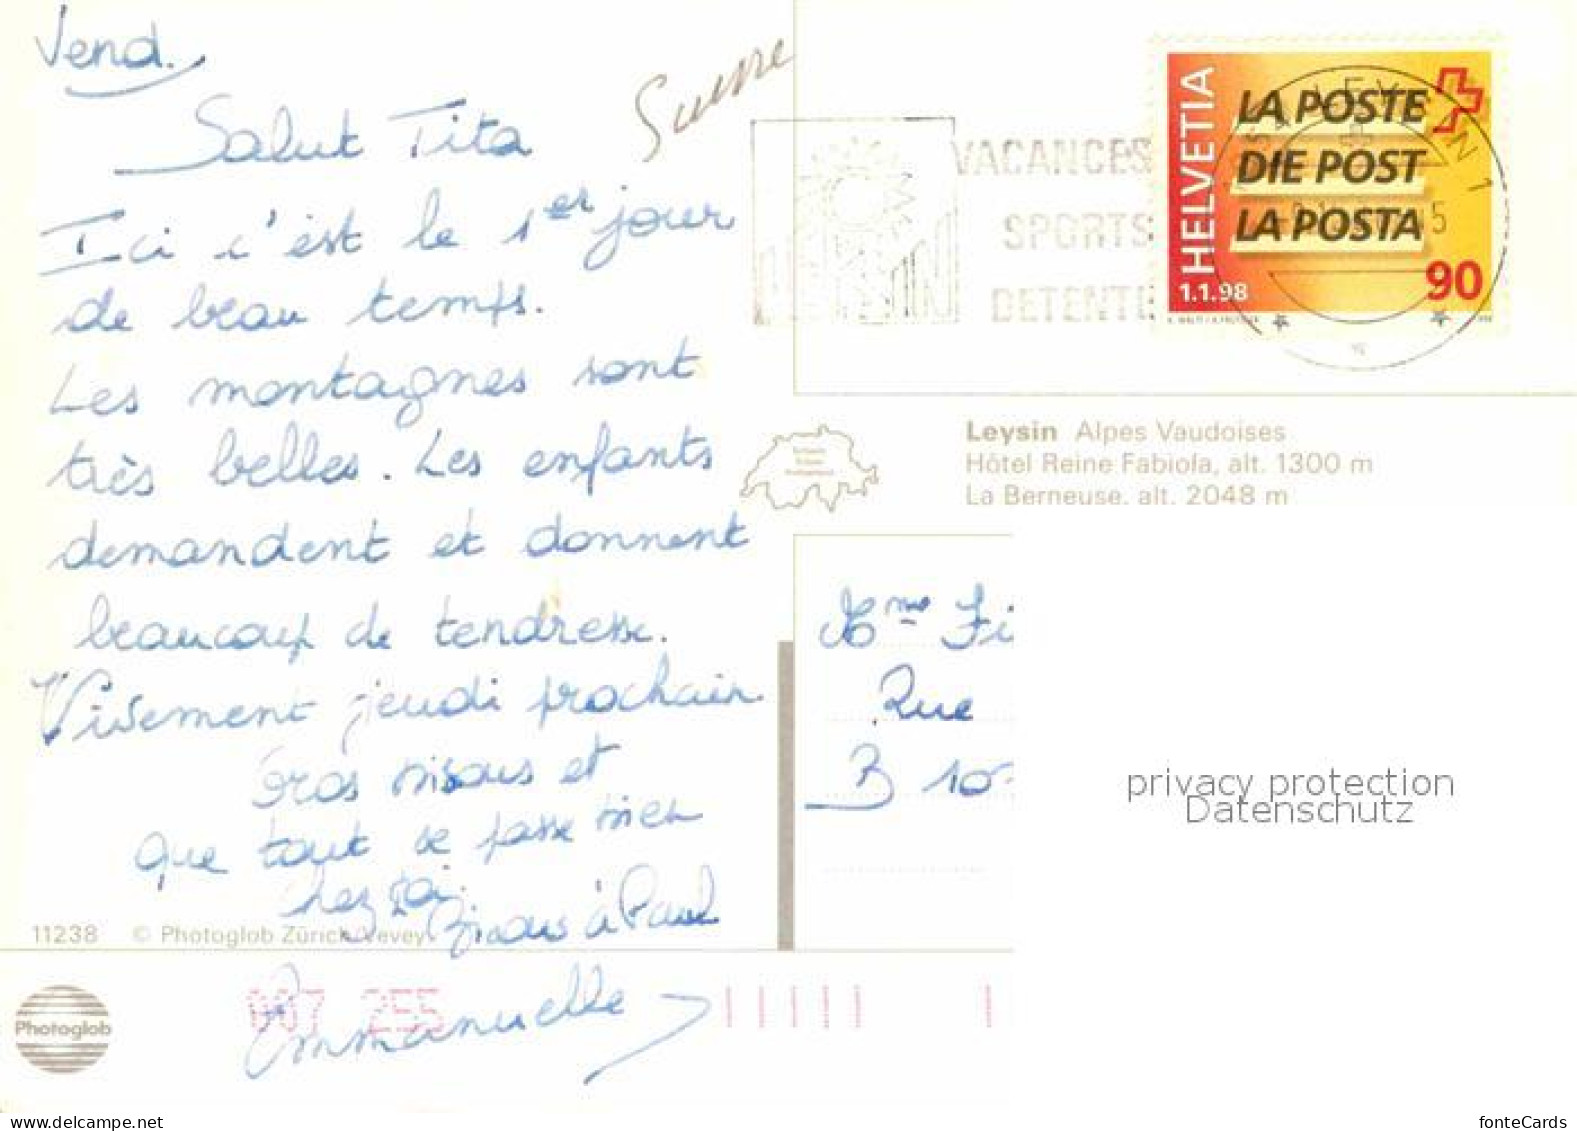 Vend.
Suisse
Salut Tita
Ici c'est le 1er jour
de beau temps.
Les montagnes sont
très belles. Les enfants
demandent et donnent
beaucoup de tendresse.
Vivement jeudi prochain
Gros bisous et
que tout se passe bien
chez toi.
Bisous à Paul
Emmanuelle
11238 © Photoglob Zürich/Vevey
Photoglob
007 255
VACANCES
SPORTS
DETENTE
HELVETIA
LA POSTE
DIE POST
LA POSTA
90
1.1.98
Leysin Alpes Vaudoises
Hôtel Reine Fabiola, alt. 1300 m
La Berneuse. alt. 2048 m
Mme Fi
Rue
B 10
privacy protection
Datenschutz
www.delcampe.net
fonteCards